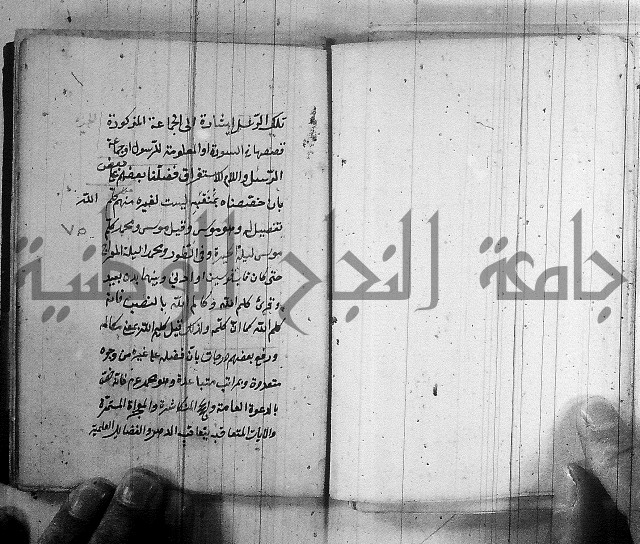 تلك الرسل إشارة الى الجماعة المذكورة
قصصها في السورة او المعلومة للرسول او جماعة
الرسل واللام للاستغراق فضلنا بعضهم على بعض
بان خصصناه بمنقبه ليست لغيره منهم من كلم الله
تفصيل له وهو موسى وقيل موسى ومحمد كلم
موسى ليلة الحيرة وفى الطور ومحمد ليلة المعراج
حتى كان قاب قوسين او ادنى وبينهما بون بعيد
وقرئ كلم الله وكالم الله بالنصب فانه
كلم الله كما ان الله كلمه ولذلك قيل كليم الله بمعنى مكالمه
ورفع بعضهم درجات بان فضله على غيره من وجوه
متعددة وبمراتب متباعدة وهو محمد عم فانه خص
بالدعوة العامة والحجج المتكاثرة والمعجزات المستمرة
والايات المتعاقبة بتعاقب الدهر والفضائل العلمية
٧٥
جامعة النجاح الوطنية